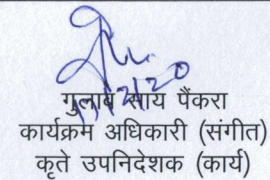 11/2/20
गुलाब साय पैंकरा
कार्यक्रम अधिकारी (संगीत)
कृते उपनिदेशक (कार्य)